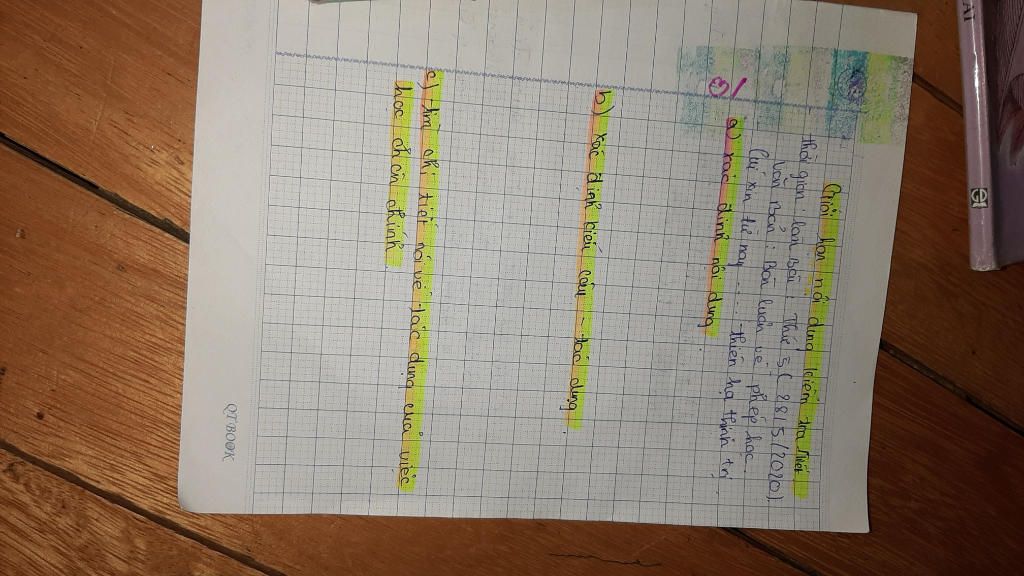 Giới hạn nội dung kiểm tra 1 tiết
thời gian làm bài: Thứ 5 (28/5/2020)
Văn bản: Bàn luận về phép học
Cúi xin từ nay ... thiên hạ thịnh trị
③/
a) xác định nội dung
b) xác định kiểu câu - tác dụng
c) tìm chi tiết nói về tác dụng của việc
học chân chính
QTBOOK